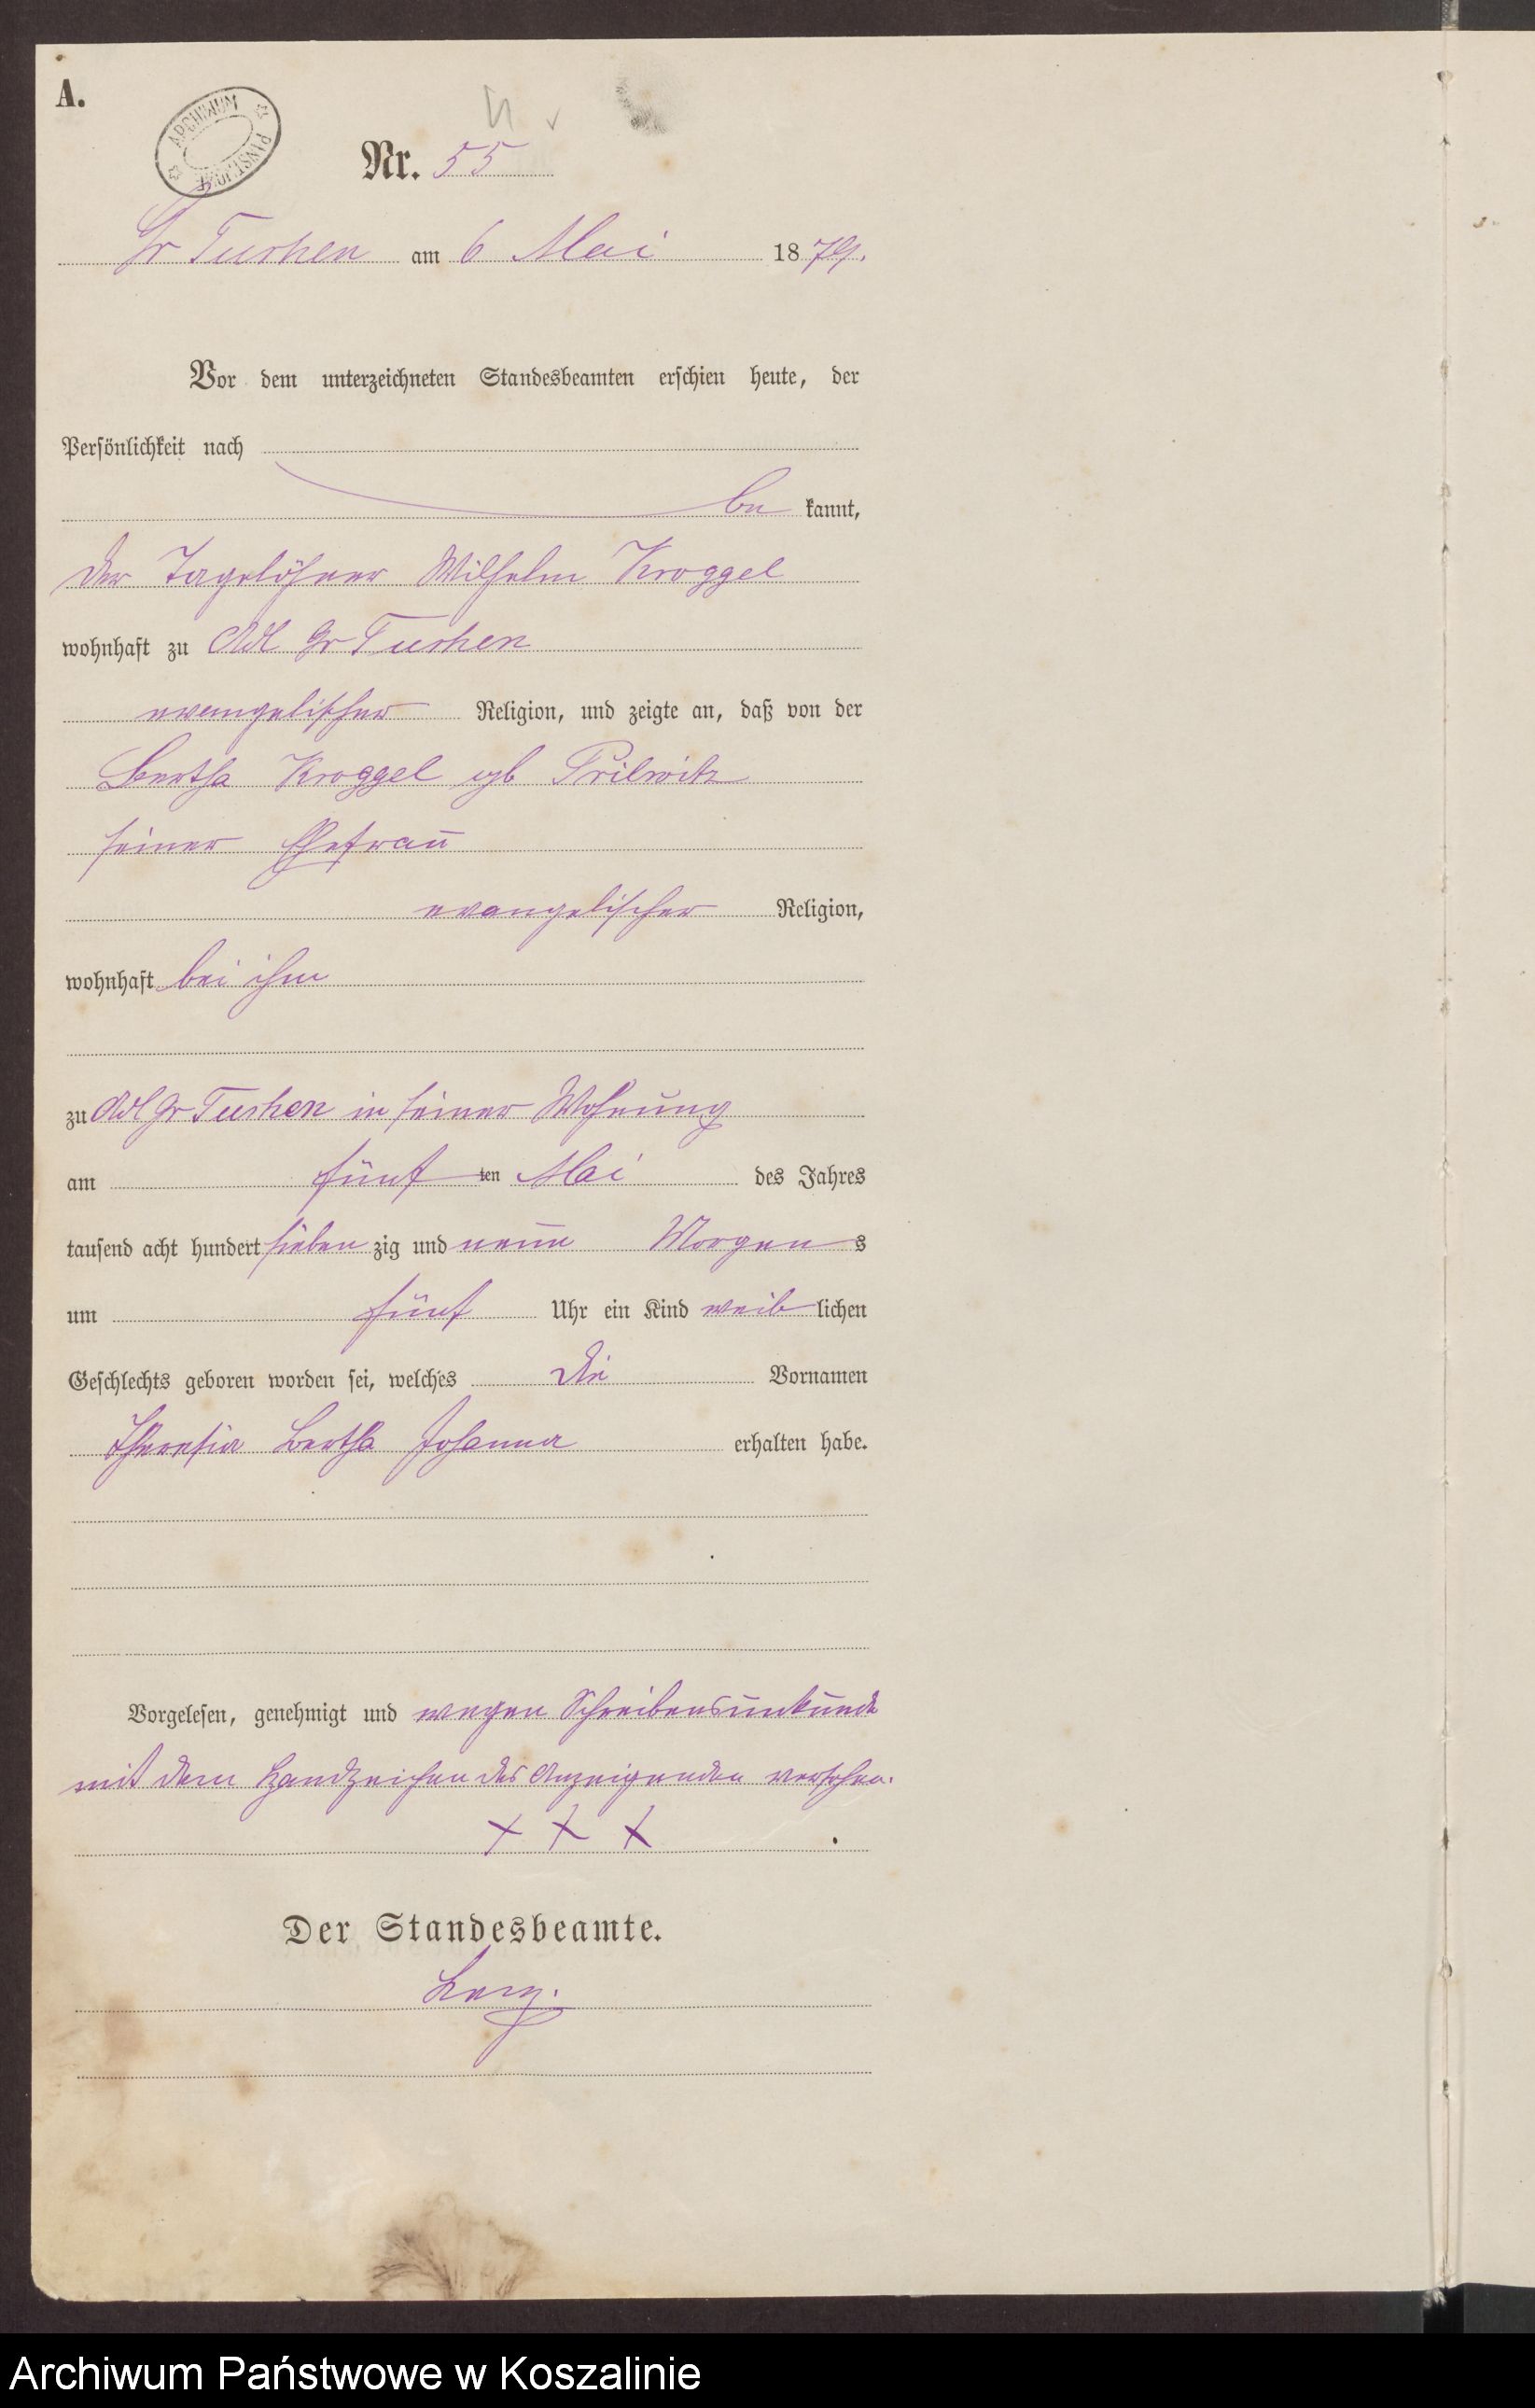 A.
ARCHIWUM
Nr. 55
Gr Tuchen am 6 Mai 1879.
Vor dem unterzeichneten Standesbeamten erschien heute, der
Persönlichkeit nach
be kannt,
der Tagelöhner Wilhelm Kroggel
wohnhaft zu Adl Gr Tuchen
evangelischer Religion, und zeigte an, daß von der
Bertha Kroggel geb Prilwitz
seiner Ehefrau
evangelischer Religion,
wohnhaft bei ihm
zu Adl Gr Tuchen in seiner Wohnung
am fünf ten Mai des Jahres
tausend acht hundert sieben zig und neun Morgen s
um fünf Uhr ein Kind weib lichen
Geschlechts geboren worden sei, welches die Vornamen
Theresia Bertha Johanna erhalten habe.
Vorgelesen, genehmigt und wegen Schreibensunkunde
mit dem Handzeichen des Anzeigenden versehen.
+ + +
Der Standesbeamte.
Archiwum Państwowe w Koszalinie